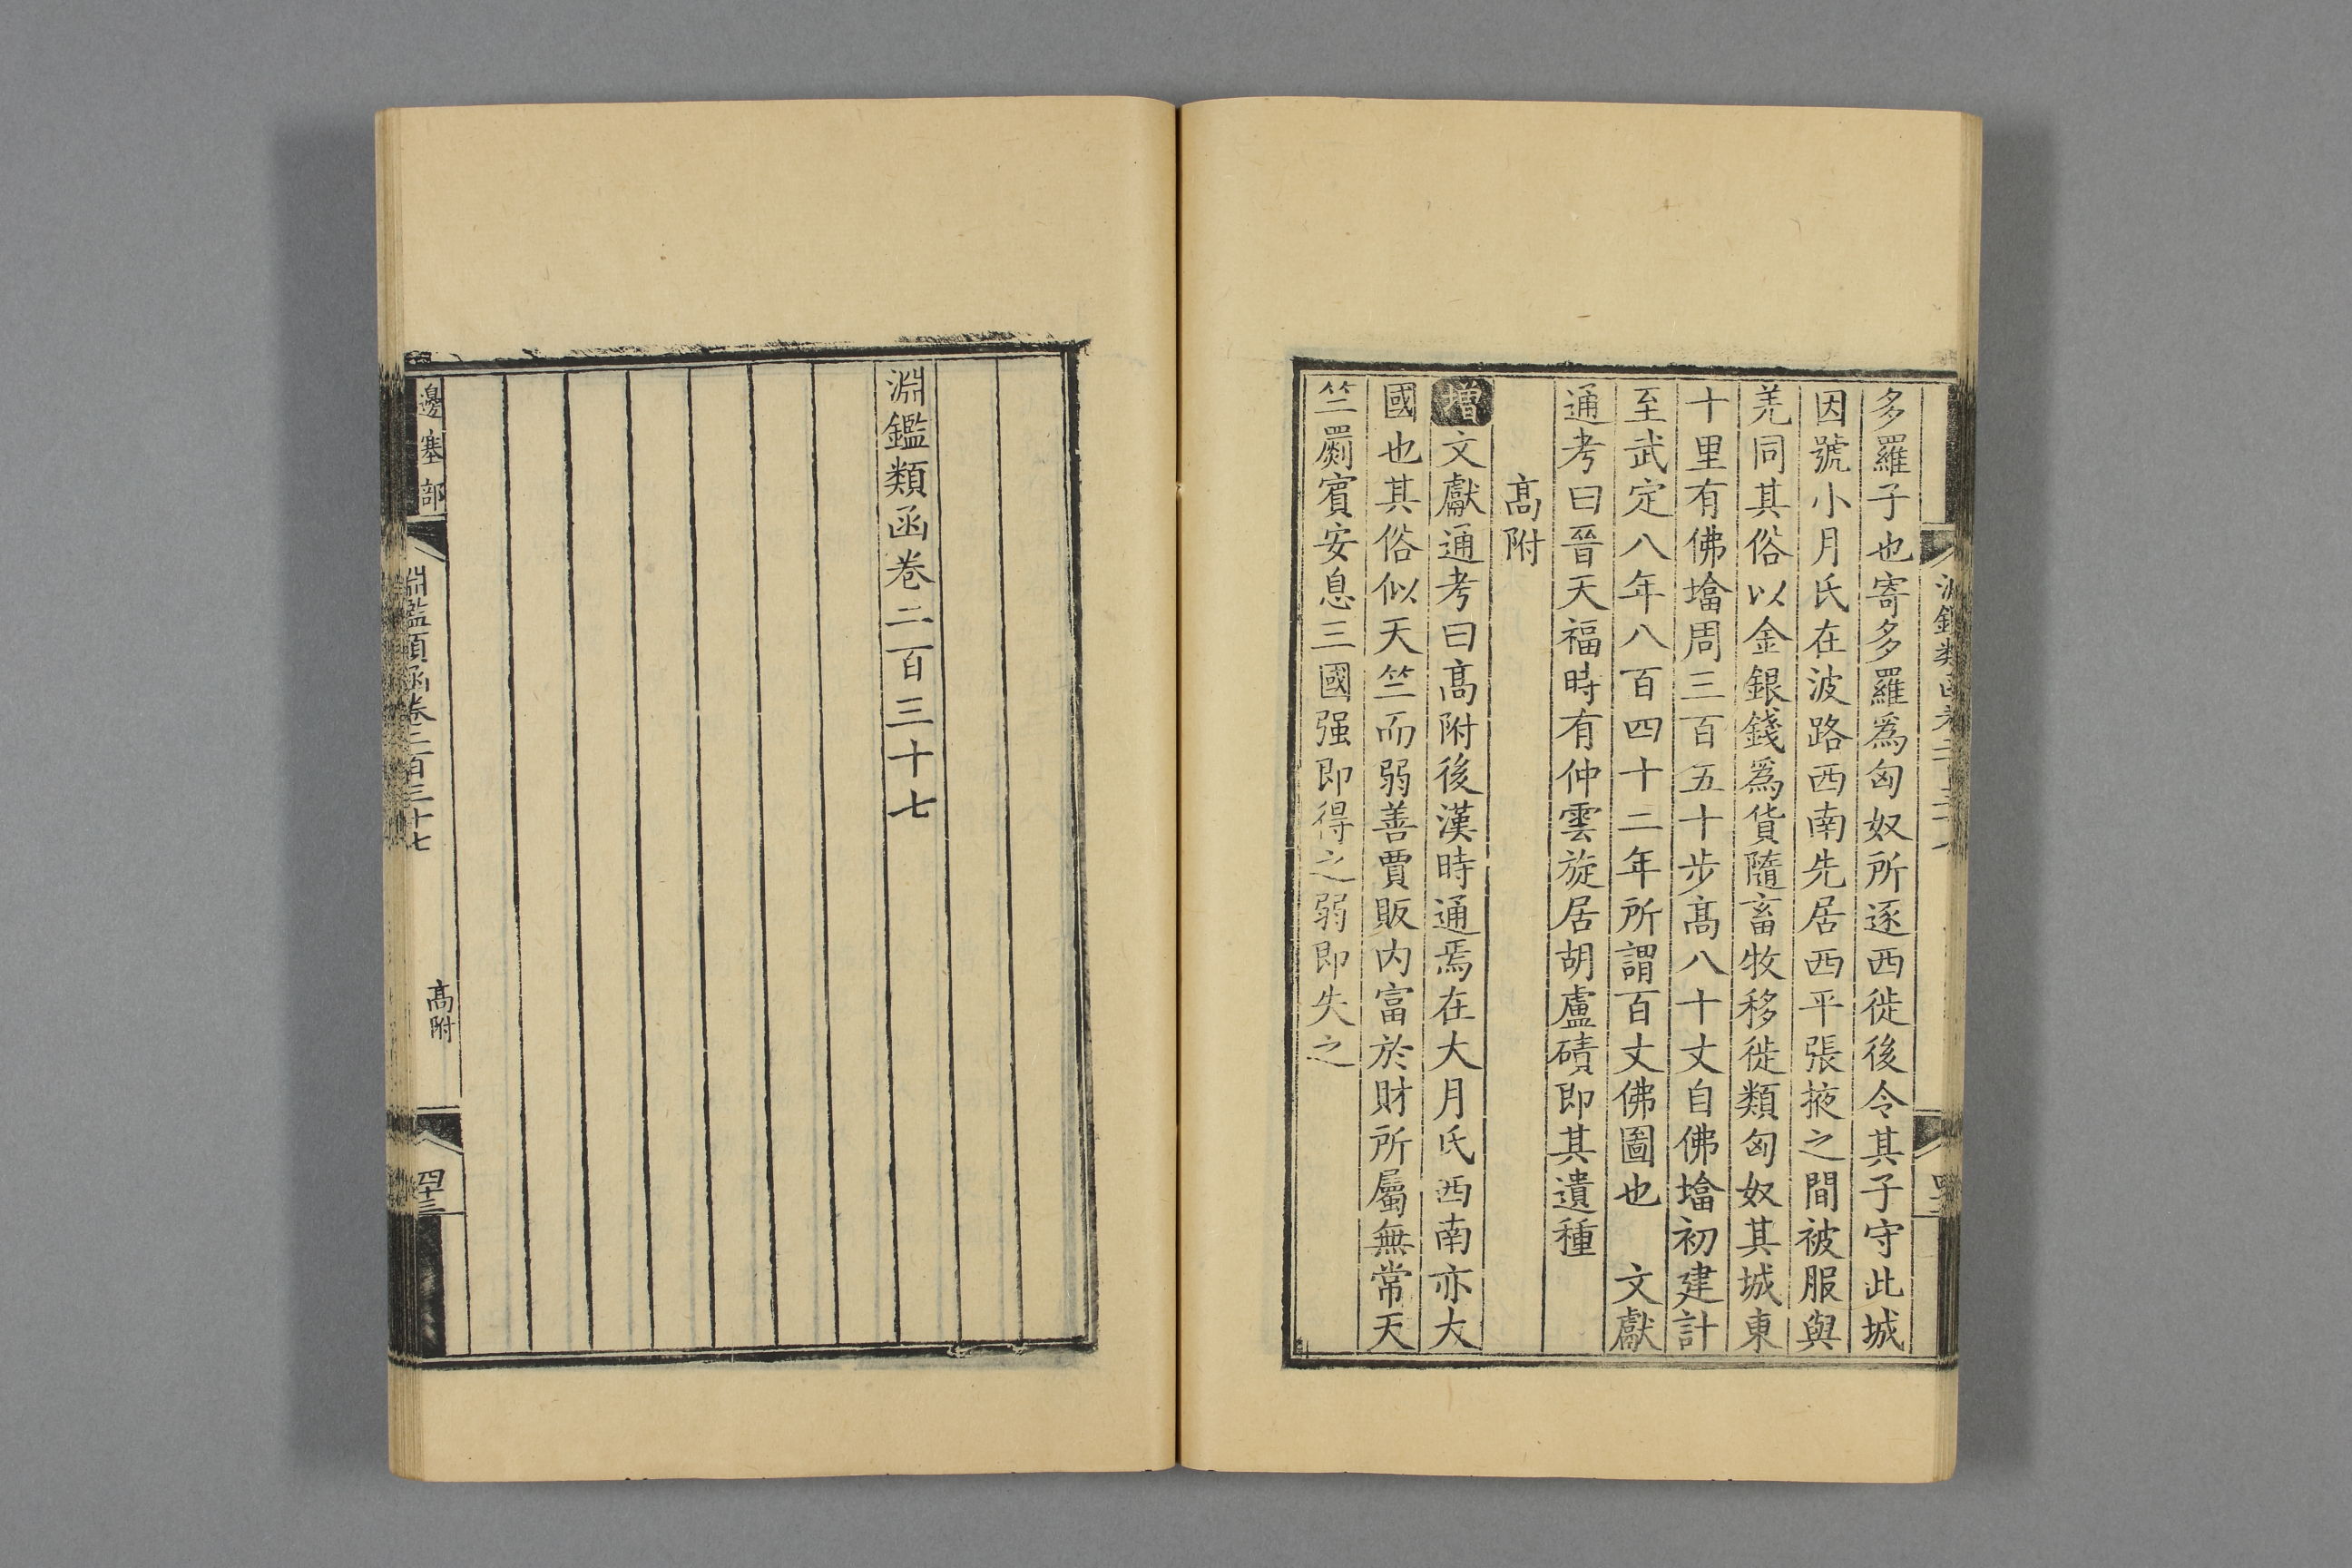 多羅子也寄多羅爲匈奴所逐西徙後令其子守此城
因號小月氏在波路西南先居西平張掖之間被服與
羌同其俗以金銀錢爲貨隨畜牧移徙類匈奴其城東
十里有佛墖周三百五十步髙八十丈自佛墖初建計
至武定八年八百四十二年所謂百丈佛圖也　文獻
通考曰晉天福時有仲雲旋居胡盧磧即其遺種
髙附
增文獻通考曰髙附後漢時通焉在大月氏西南亦大
國也其俗似天竺而弱善賈販内富於財所屬無常天
竺罽賓安息三國强即得之弱即失之
淵鑑類函卷二百三十七
邊塞部
淵鑑類函卷二百三十七
髙附
四十三